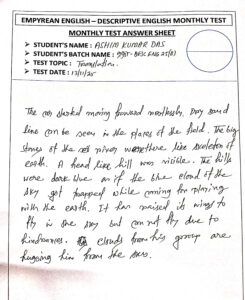 EMPYREAN ENGLISH – DESCRIPTIVE ENGLISH MONTHLY TEST
MONTHLY TEST ANSWER SHEET
STUDENT'S NAME : ASHIM KUMAR DAS
STUDENT'S BATCH NAME :
TEST TOPIC : Translation.
TEST DATE :
The car started moving forward noiselessly. Dry sand
line can be seen in the places of the field. The big
stones of the river were there like skeleton of
earth. A head like hill was visible. The hills
were dark blue as if the blue cloud of the
sky got trapped while coming for playing
with the earth. It has raised its wings to
fly in the sky but can not fly due to
hindrances. clouds from his group are
hugging him from the